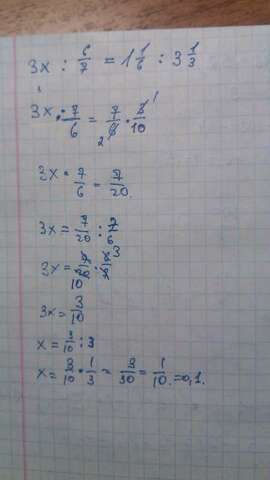 3x : 6/7 = 1 1/6 : 3 1/3
3x · 7/6 = 7/6 2 · 3 1/10
3x · 7/6 = 7/20.
3x = 7/20 : 7/6
3x = 7/20 10 · 6 3/7
3x = 3/10
x = 3/10 : 3
x = 3/10 · 1/3 = 3/30 = 1/10. = 0,1.